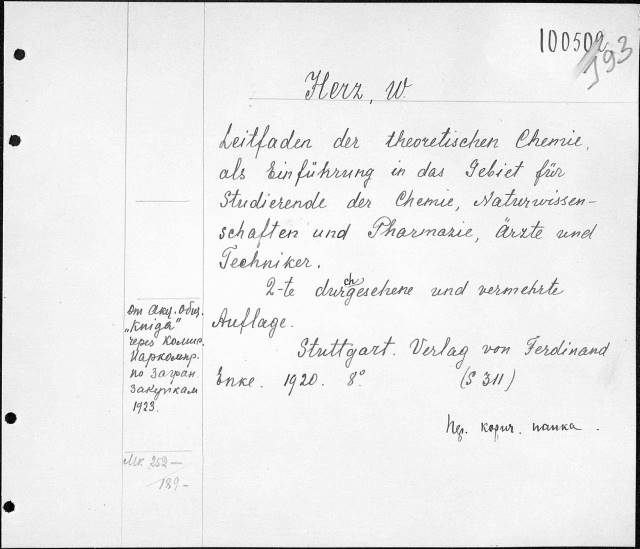 100502
193
Herz, W.
Leitfaden der theoretischen Chemie,
als Einführung in das Gebiet für
Studierende der Chemie, Naturwissen-
schaften und Pharmazie, Ärzte und
Techniker.
2-te durchgesehene und vermehrte
Auflage.
Stuttgart. Verlag von Ferdinand
Enke. 1920. 8° (S 311)
корич. папка.
От Акц. Общ.
„Kniga"
через Комис.
Наркомпр.
по Загран.
Закупкам
1923.
Mk. 252—
189-